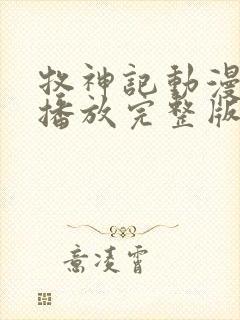 牧神記動漫
播放完整版
意凌霄